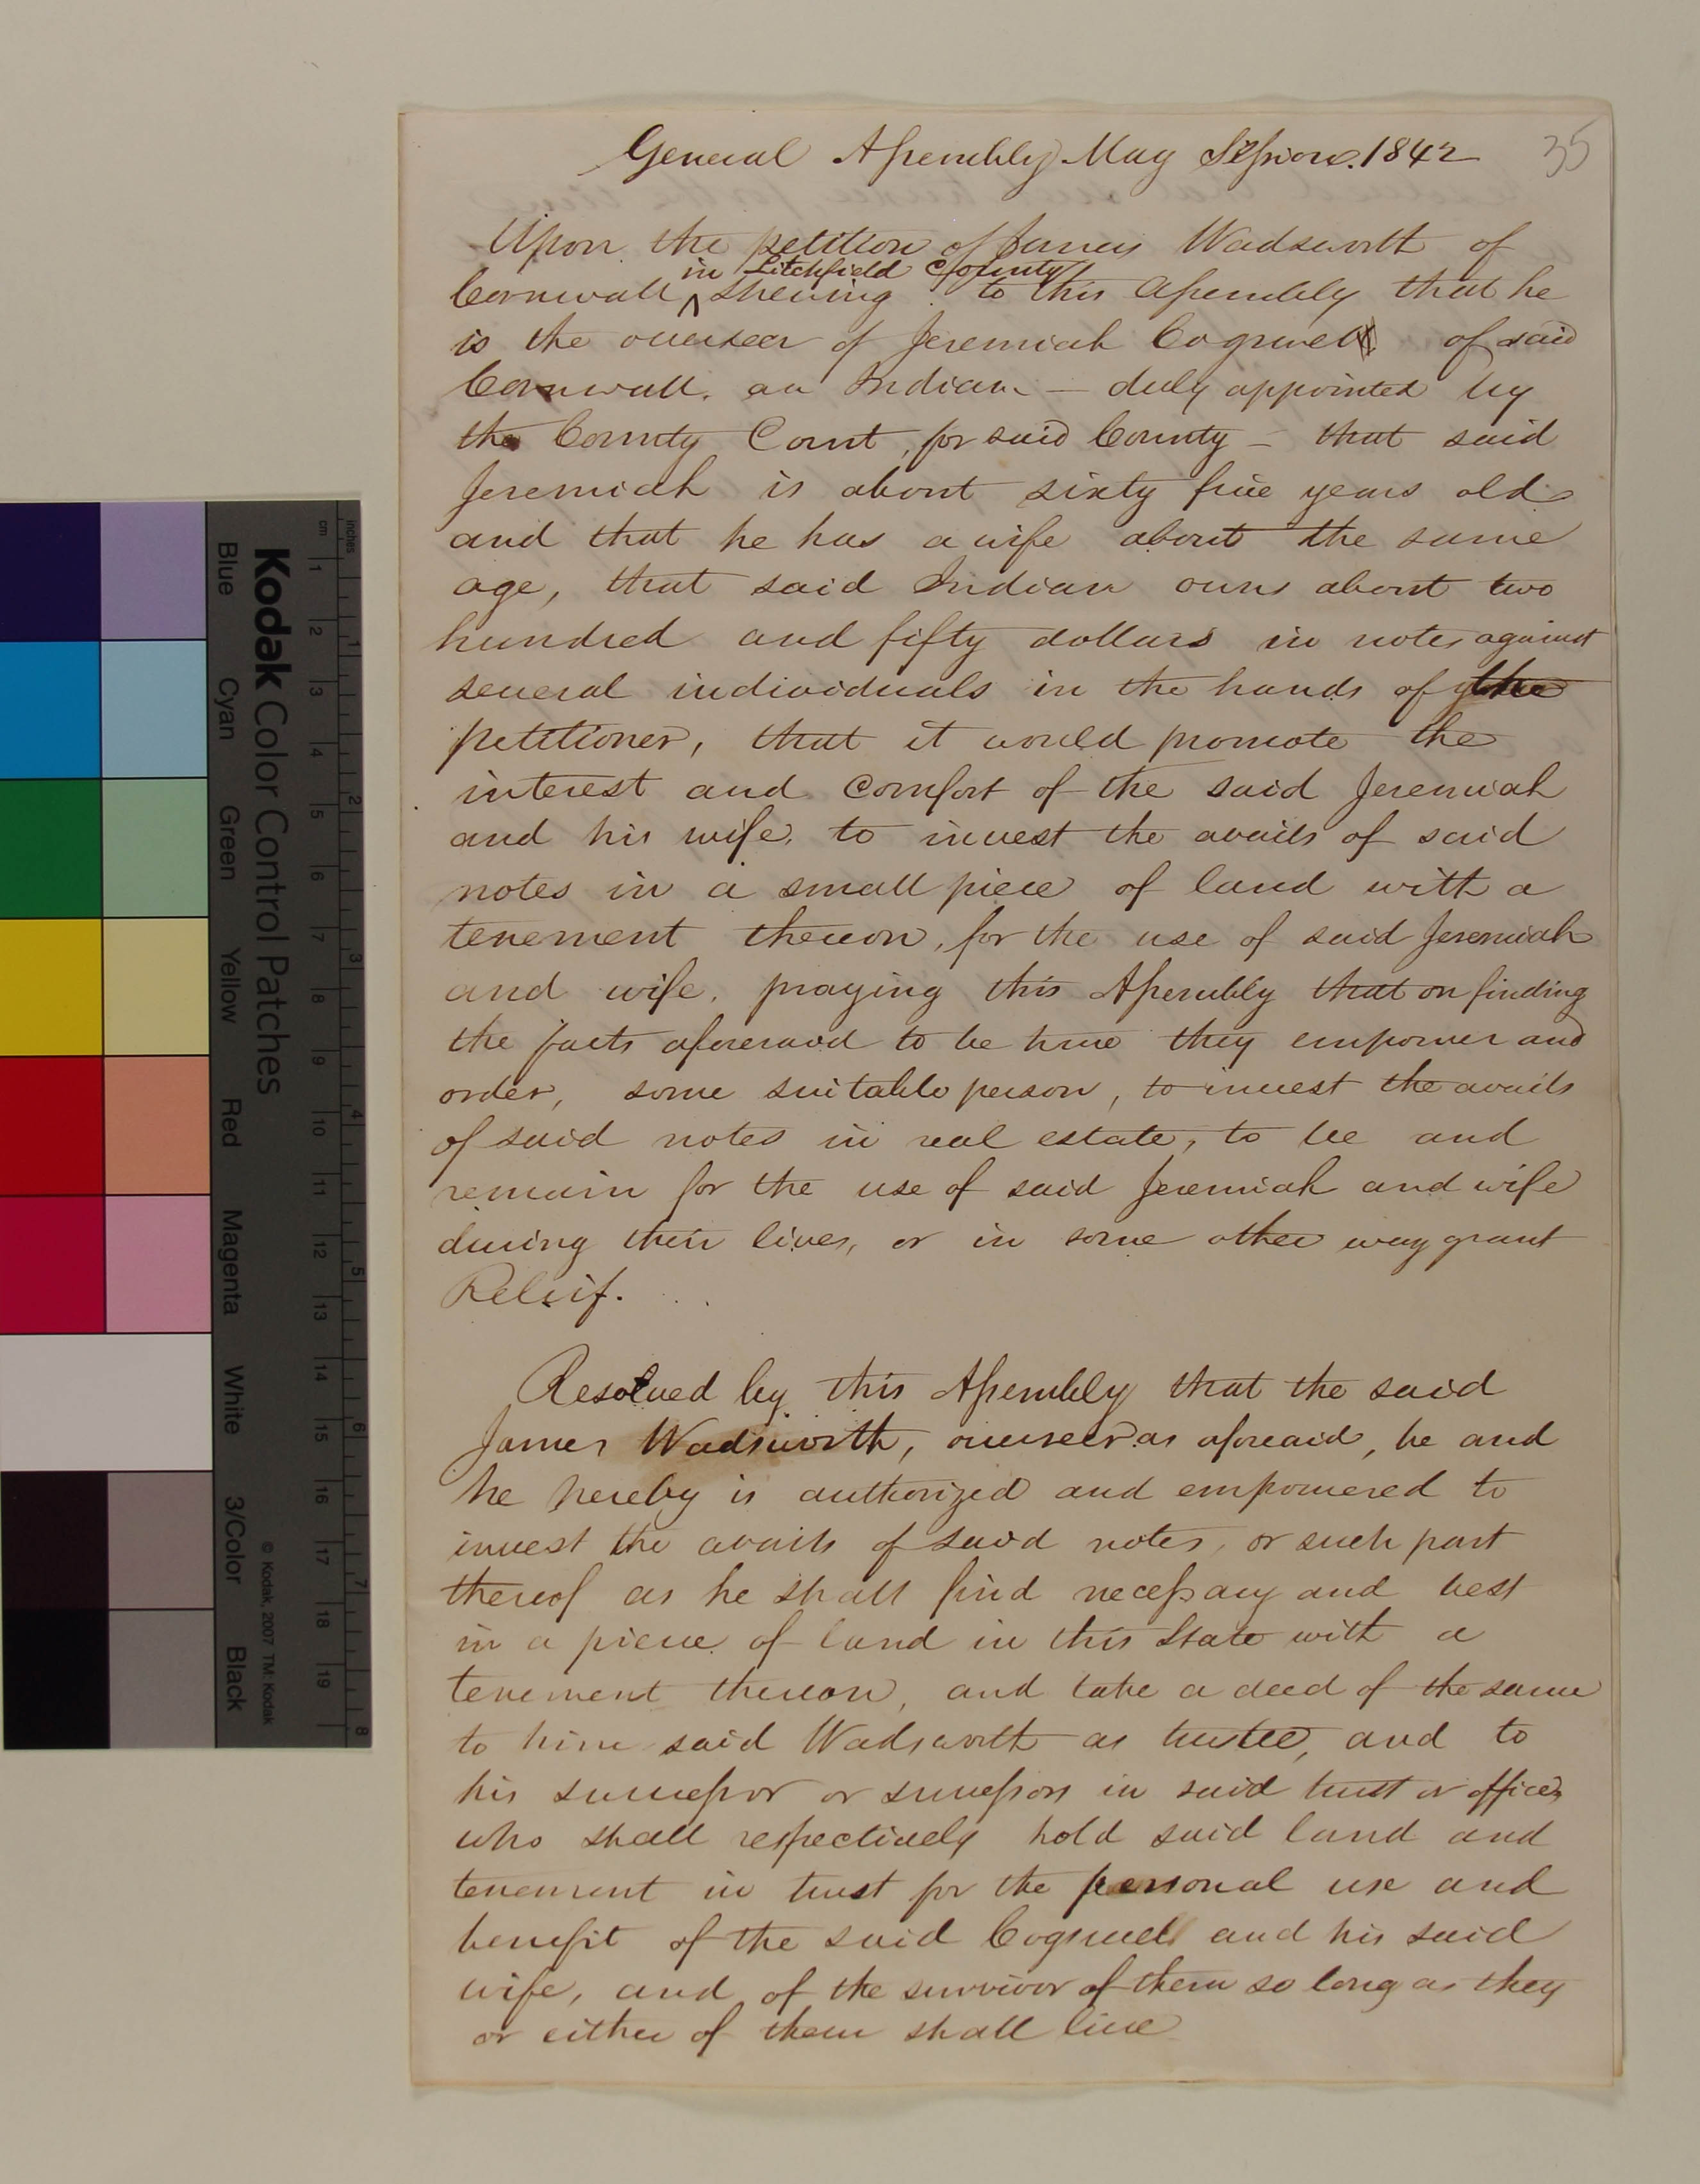 General Assembly May Session. 1842
35
Upon the petition of James Wadsworth of
in Litchfield County
Cornwall ^ shewing to this Assembly that he
is the overseer of Jeremiah Cogswell of said
Cornwall, an Indian — duly appointed by
the County Court, for said County – that said
Jeremiah is about sixty five years old
and that he has a wife about the same
age, that said Indian owns about two
hundred and fifty dollars in notes against
several individuals in the hands of the
petitioner, that it would promote the
interest and comfort of the said Jeremiah
and his wife, to invest the avails of said
notes in a small piece of land with a
tenement thereon, for the use of said Jeremiah
and wife, praying this Assembly that on finding
the facts aforesaid to be true they empower and
order, some suitable person, to invest the avails
of said notes in real estate, to be and
remain for the use of said Jeremiah and wife
during their lives, or in some other way grant
Releif.
Resolved by this Assembly that the said
James Wadsworth, overseer as aforeaid, be and
he hereby is authorized and empowered to
invest the avails of said notes, or such part
thereof as he shall find necessary and best
in a piece of land in this State with a
tenement thereon, and take a deed of the same
to him said Wadsworth as trustee, and to
his successor or successors in said trust or office,
who shall respectively hold said land and
tenement in trust for the personal use and
benefit of the said Cogswell and his said
wife, and of the survivor of them so long as they
or either of them shall live
Kodak Color Control Patches
© Kodak, 2007 TM: Kodak
Blue Cyan Green Yellow Red Magenta White 3/Color Black
cm 1 2 3 4 5 6 7 8 9 10 11 12 13 14 15 16 17 18 19
inches 1 2 3 4 5 6 7 8